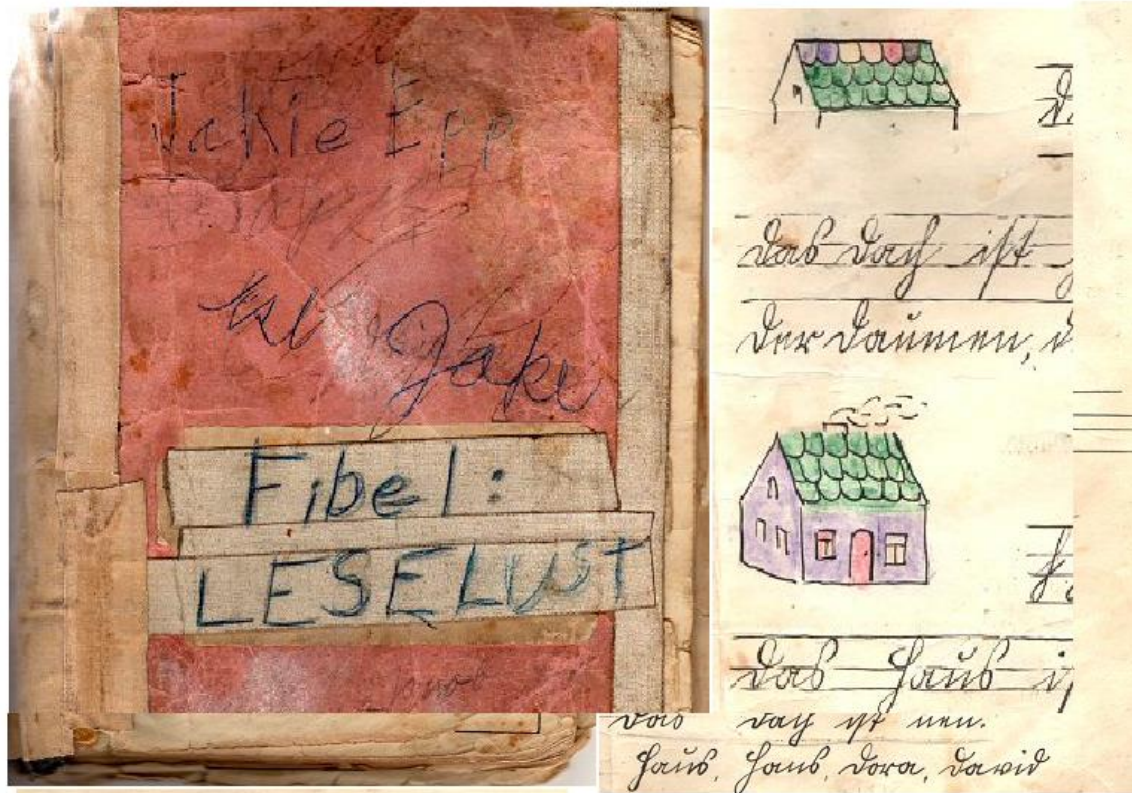 Jakie Epp
Jake
Fibel:
LESELUST
das dach ist
der daumen,
das haus
das dach ist neu.
haus, hans, dora, david